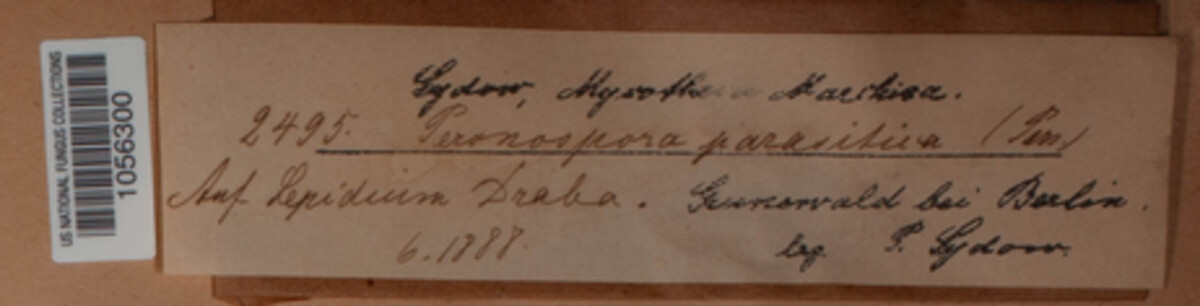 US NATIONAL FUNGUS COLLECTIONS
1056300
Sydow, Mycotheca Marchica.
2495. Peronospora parasitica (Pers)
Auf Lepidium Draba. Grunewald bei Berlin.
6.1888. leg. P. Sydow.